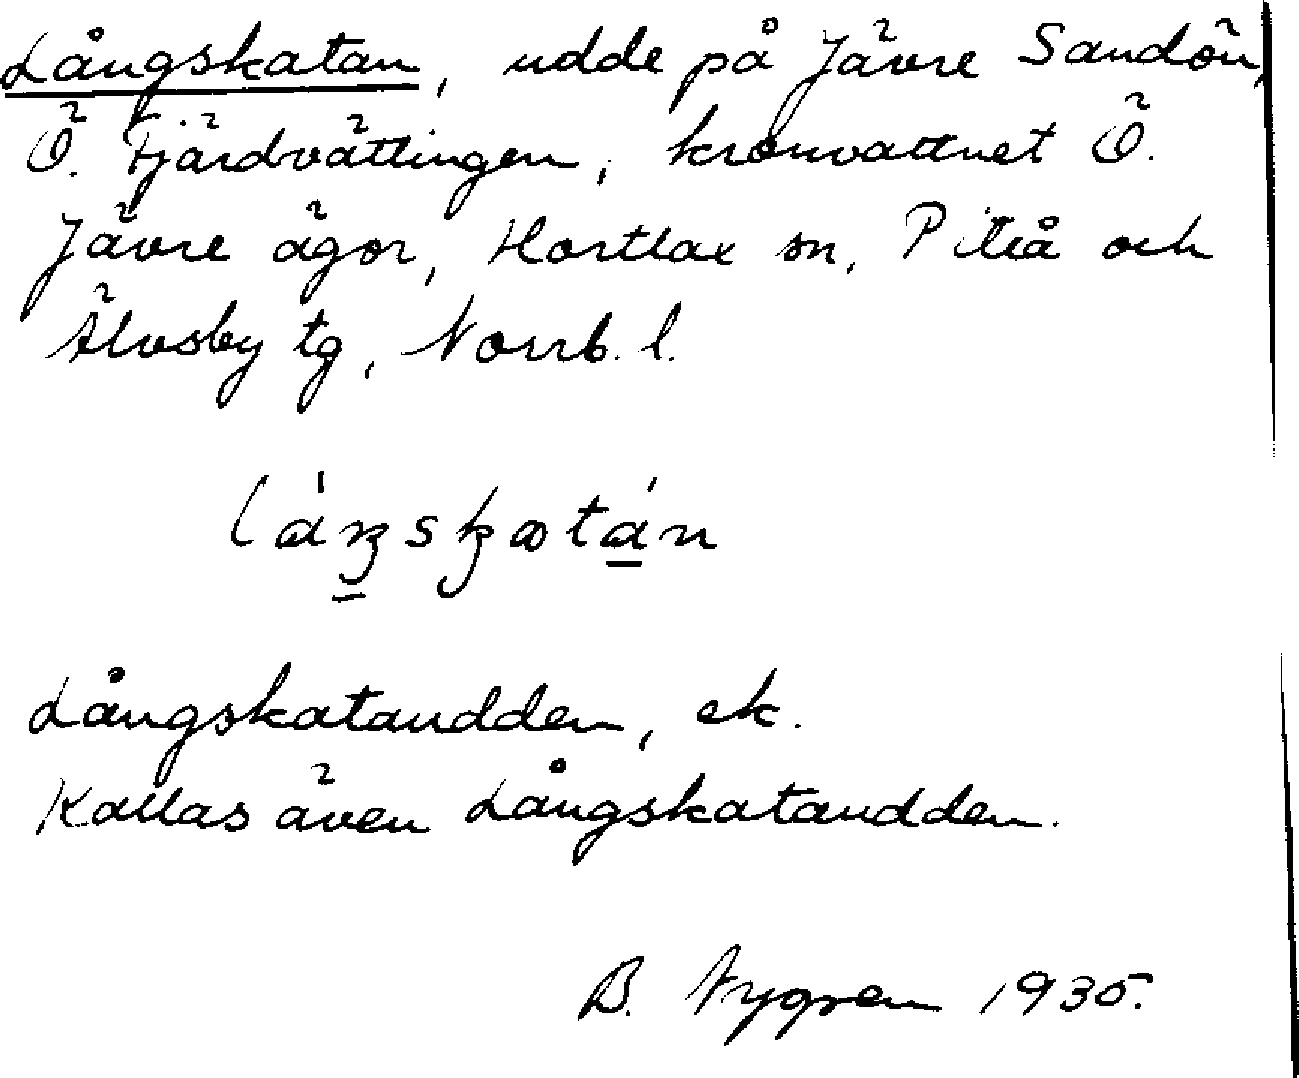 Långskatan, udde på Jävre Sandön,
Ö. Fjärdvättingen, kronvattnet Ö.
Jävre ägor, Hortlax sn, Piteå och
Älvsby tg, Norrb. l.
Långskataudden, ek.
Kallas även Långskataudden.
B. Nygren 1935.